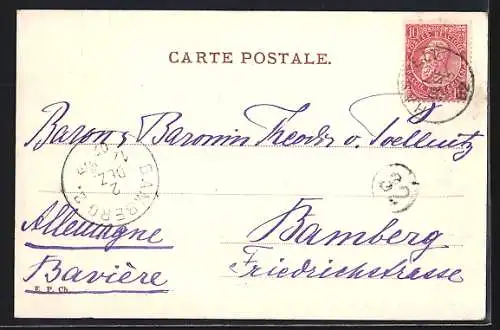 CARTE POSTALE.
10
Baron & Baronin Theodor v. Poellnitz
BAMBERG 2.
2
DEZ
Allemagne
Bavière
Bamberg
Friedrichstrasse
E. P. Ch.